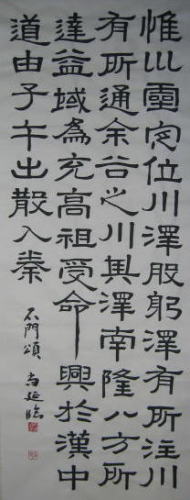 惟巛靈定位川澤股躬澤有所注川
有所通余谷之川其澤南隆八方所
達益域爲充高祖受命興於漢中
道由子午出散入秦
石門頌 尚延臨